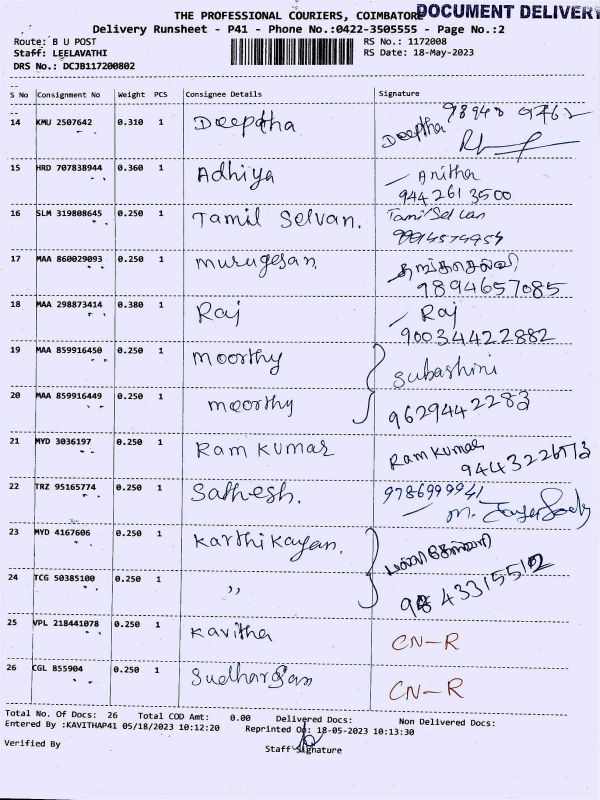 THE PROFESSIONAL COURIERS, COIMBATORE
DOCUMENT DELIVERY
Delivery Runsheet - P41 - Phone No.:0422-3505555 - Page No.:2
Route: B U POST
RS No.: 1172008
Staff: LEELAVATHI
RS Date: 18-May-2023
DRS No.: DCJB117200802
S No Consignment No Weight PCS Consignee Details Signature
14 KMU 2507642 0.310 1 Deeptha Deeptha 98948
15 HRD 707838944 0.360 1 Adhiya Anitha
944 261 3500
16 SLM 319808645 0.250 1 Tamil Selvan. Tamil Selvan
17 MAA 860029093 0.250 1 Murugesan
9894657085
18 MAA 298873414 0.380 1 Raj Raj
90034422882
19 MAA 859916450 0.250 1 Moorthy Subashini
20 MAA 859916449 0.250 1 Moorthy 9629442283
21 MYD 3036197 0.250 1 Ram Kumar Ram Kumar
22 TRZ 95165774 0.250 1 Sathesh. 9786999941
M.
23 MYD 4167606 0.250 1 Karthikayan.
24 TCG 50385100 0.250 1 ,,
25 VPL 218441078 0.250 1 Kavitha CN-R
26 CGL 855904 0.250 1 Sudharsan CN-R
Total No. Of Docs: 26 Total COD Amt: 0.00 Delivered Docs: Non Delivered Docs:
Entered By :KAVITHAP41 05/18/2023 10:12:20 Reprinted On: 18-05-2023 10:13:30
Verified By
Staff Signature